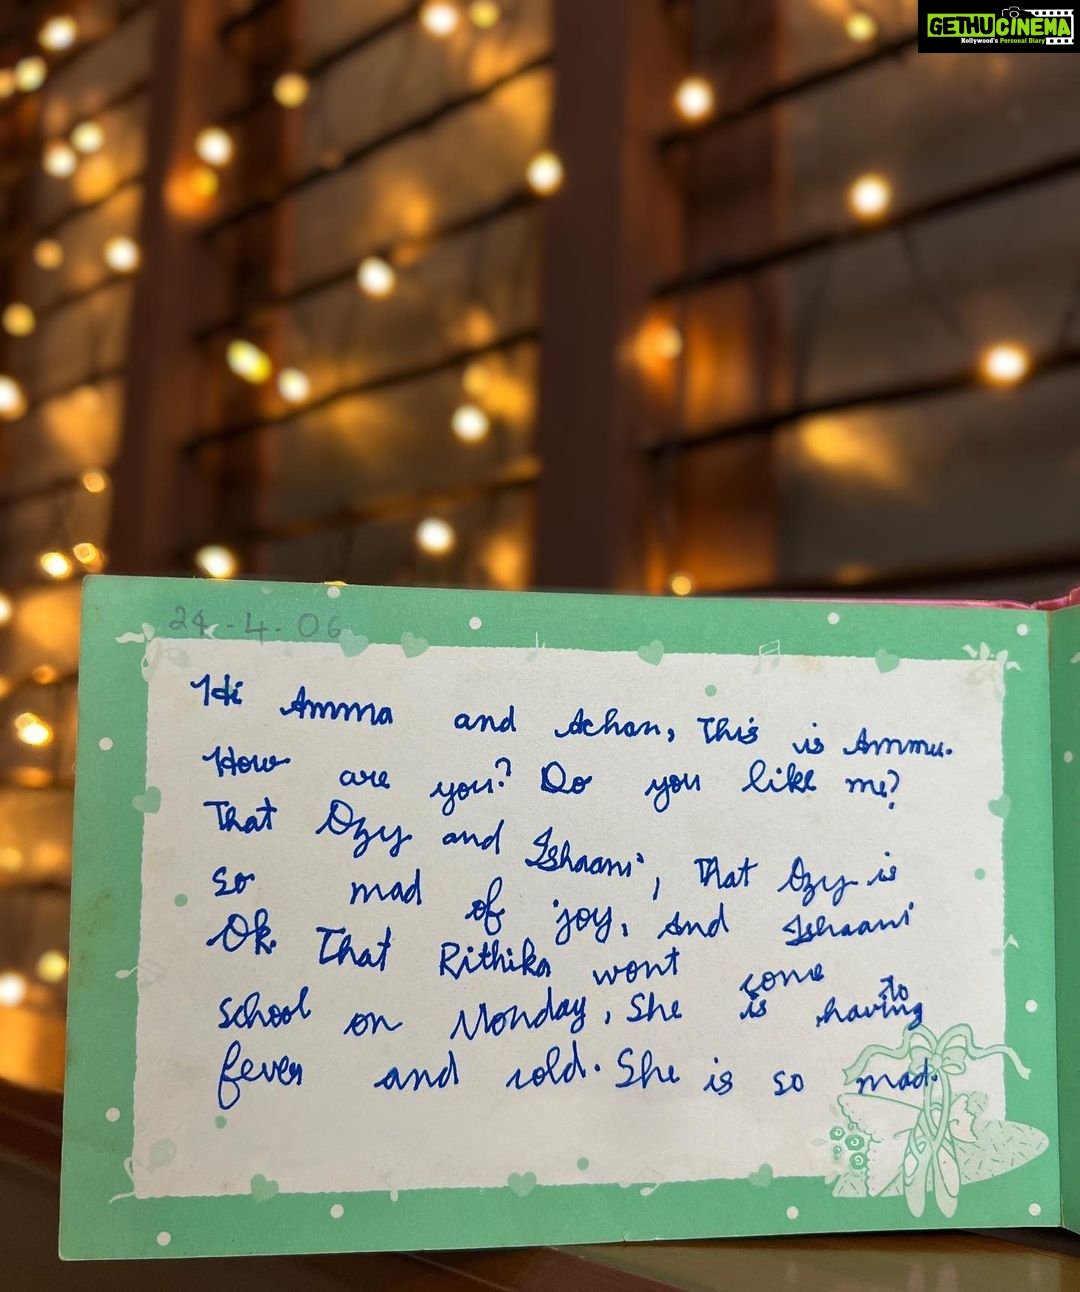 GETHUCINEMA
Kollywood's Personal Diary
24-4-06
Hi Amma and Achan, This is Ammu.
How are you? Do you like me?
That Ozy and Ishaani, That Ozy is
so mad of joy, And Ishaani
Ok. That Rithika wont come to
school on Monday, She is having
fever and cold. She is so mad.